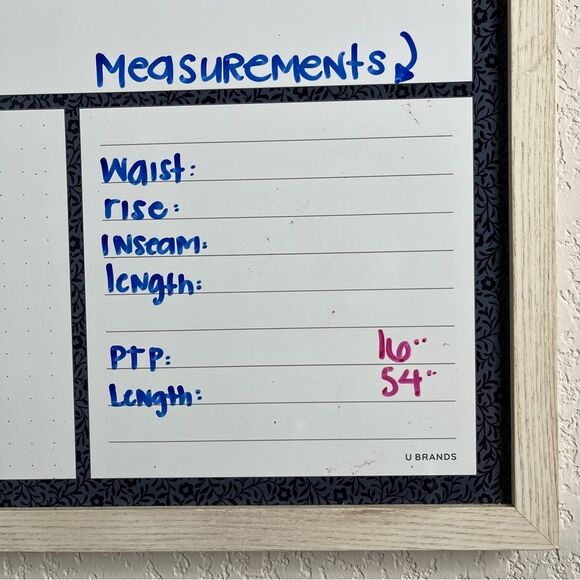 Measurements
Waist:
rise:
Inseam:
length:
PTP: 16"
Length: 54"
U BRANDS